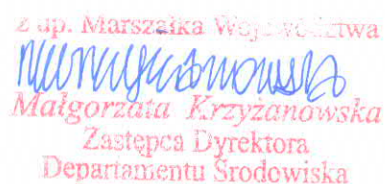 z up. Marszałka Województwa
Małgorzata Krzyżanowska
Zastępca Dyrektora
Departamentu Środowiska